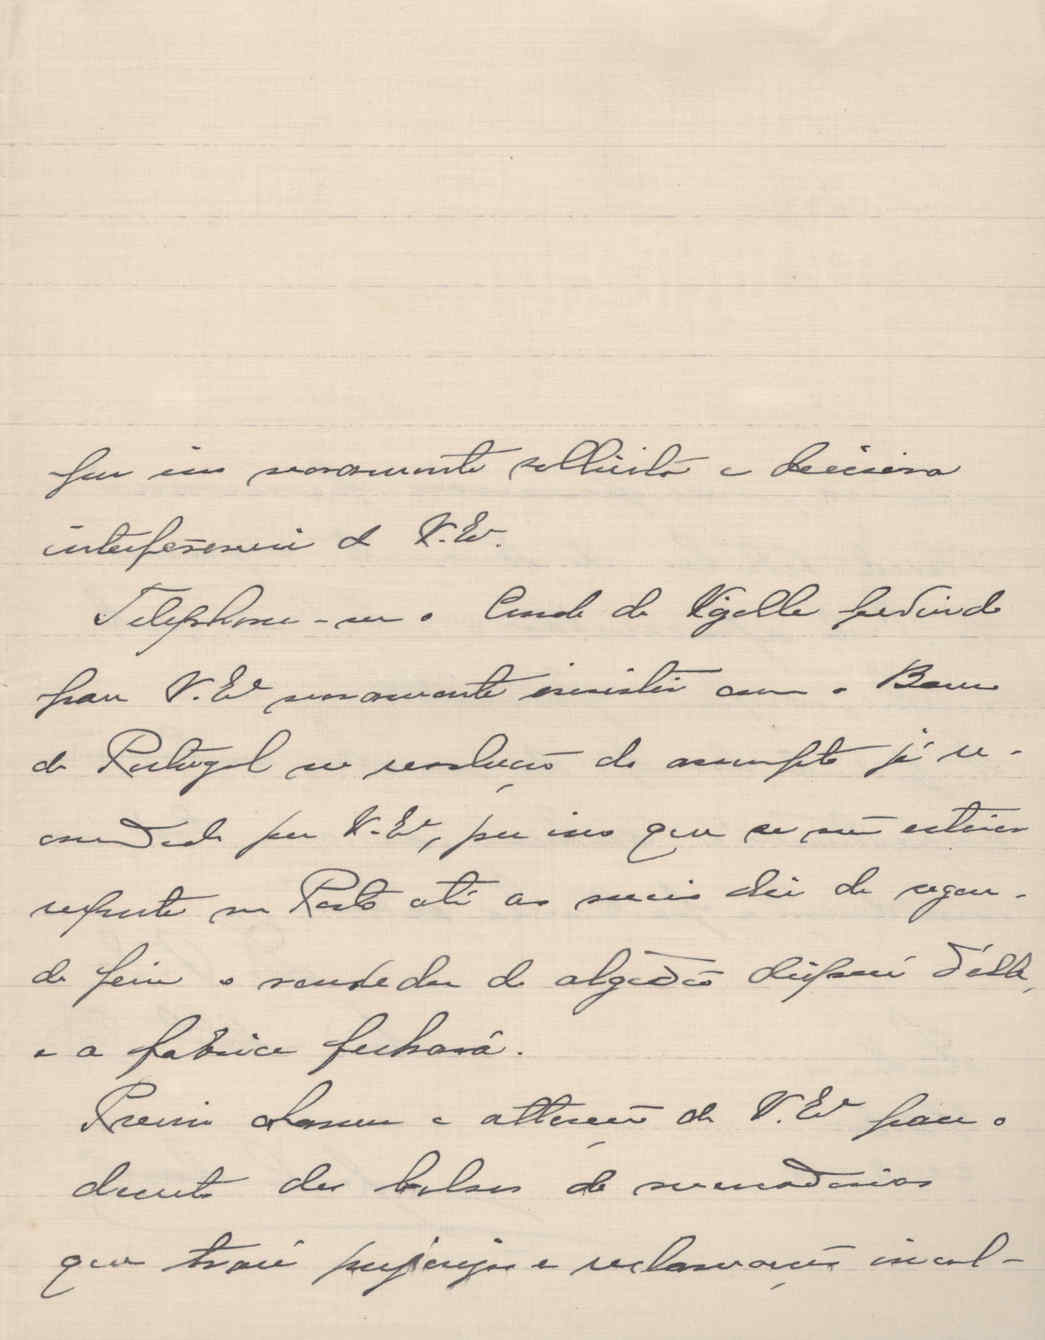 por isso novamente sollicito a decisiva
interferencia de V. Exª.
Telephona-me o Conde de Vizella pedindo
para V. Exª novamente insistir com o Banco
de Portugal na resolução do assumpto já re-
commendado por V. Exª, por isso que se não estiver
no Porto até ao meio dia de segun-
da feira o vendedor do algodão disporá d'elle,
e a fabrica fechará.
Preciso chamar a attenção de V. Exª para o
decreto das bolsas de mercadorias
que trará prejuizos e reclamações incal-